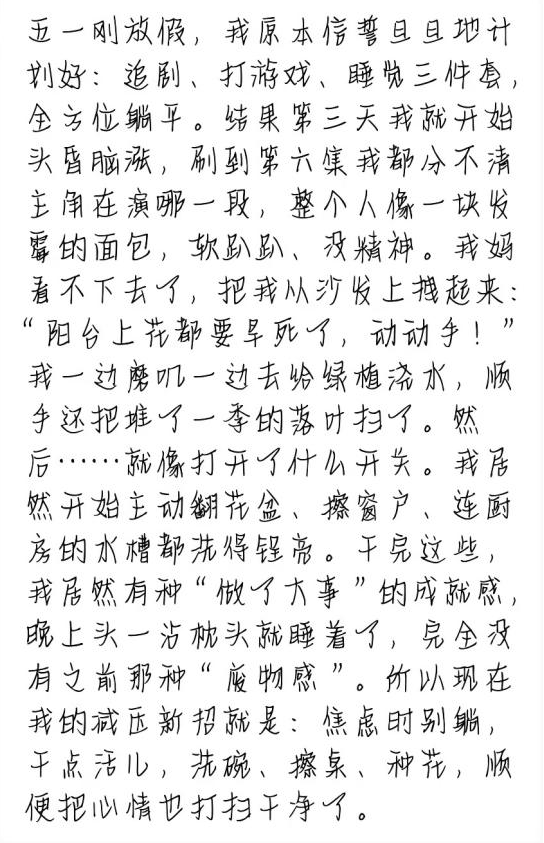 五一刚放假，我原本信誓旦旦地计
划好：追剧、打游戏、睡觉三件套，
全方位躺平。结果第三天我就开始
头昏脑涨，刷到第六集我都分不清
主角在演哪一段，整个人像一块发
霉的面包，软趴趴、没精神。我妈
看不下去了，把我从沙发上拽起来：
“阳台上花都要旱死了，动动手！”
我一边磨叽一边去给绿植浇水，顺
手还把堆了一季的落叶扫了。然
后……就像打开了什么开关。我居
然开始主动翻花盆、擦窗户、连厨
房的水槽都洗得锃亮。干完这些，
我居然有种“做了大事”的成就感，
晚上头一沾枕头就睡着了，完全没
有之前那种“废物感”。所以现在
我的减压新招就是：焦虑时别躺，
干点活儿，洗碗、擦桌、种花，顺
便把心情也打扫干净了。